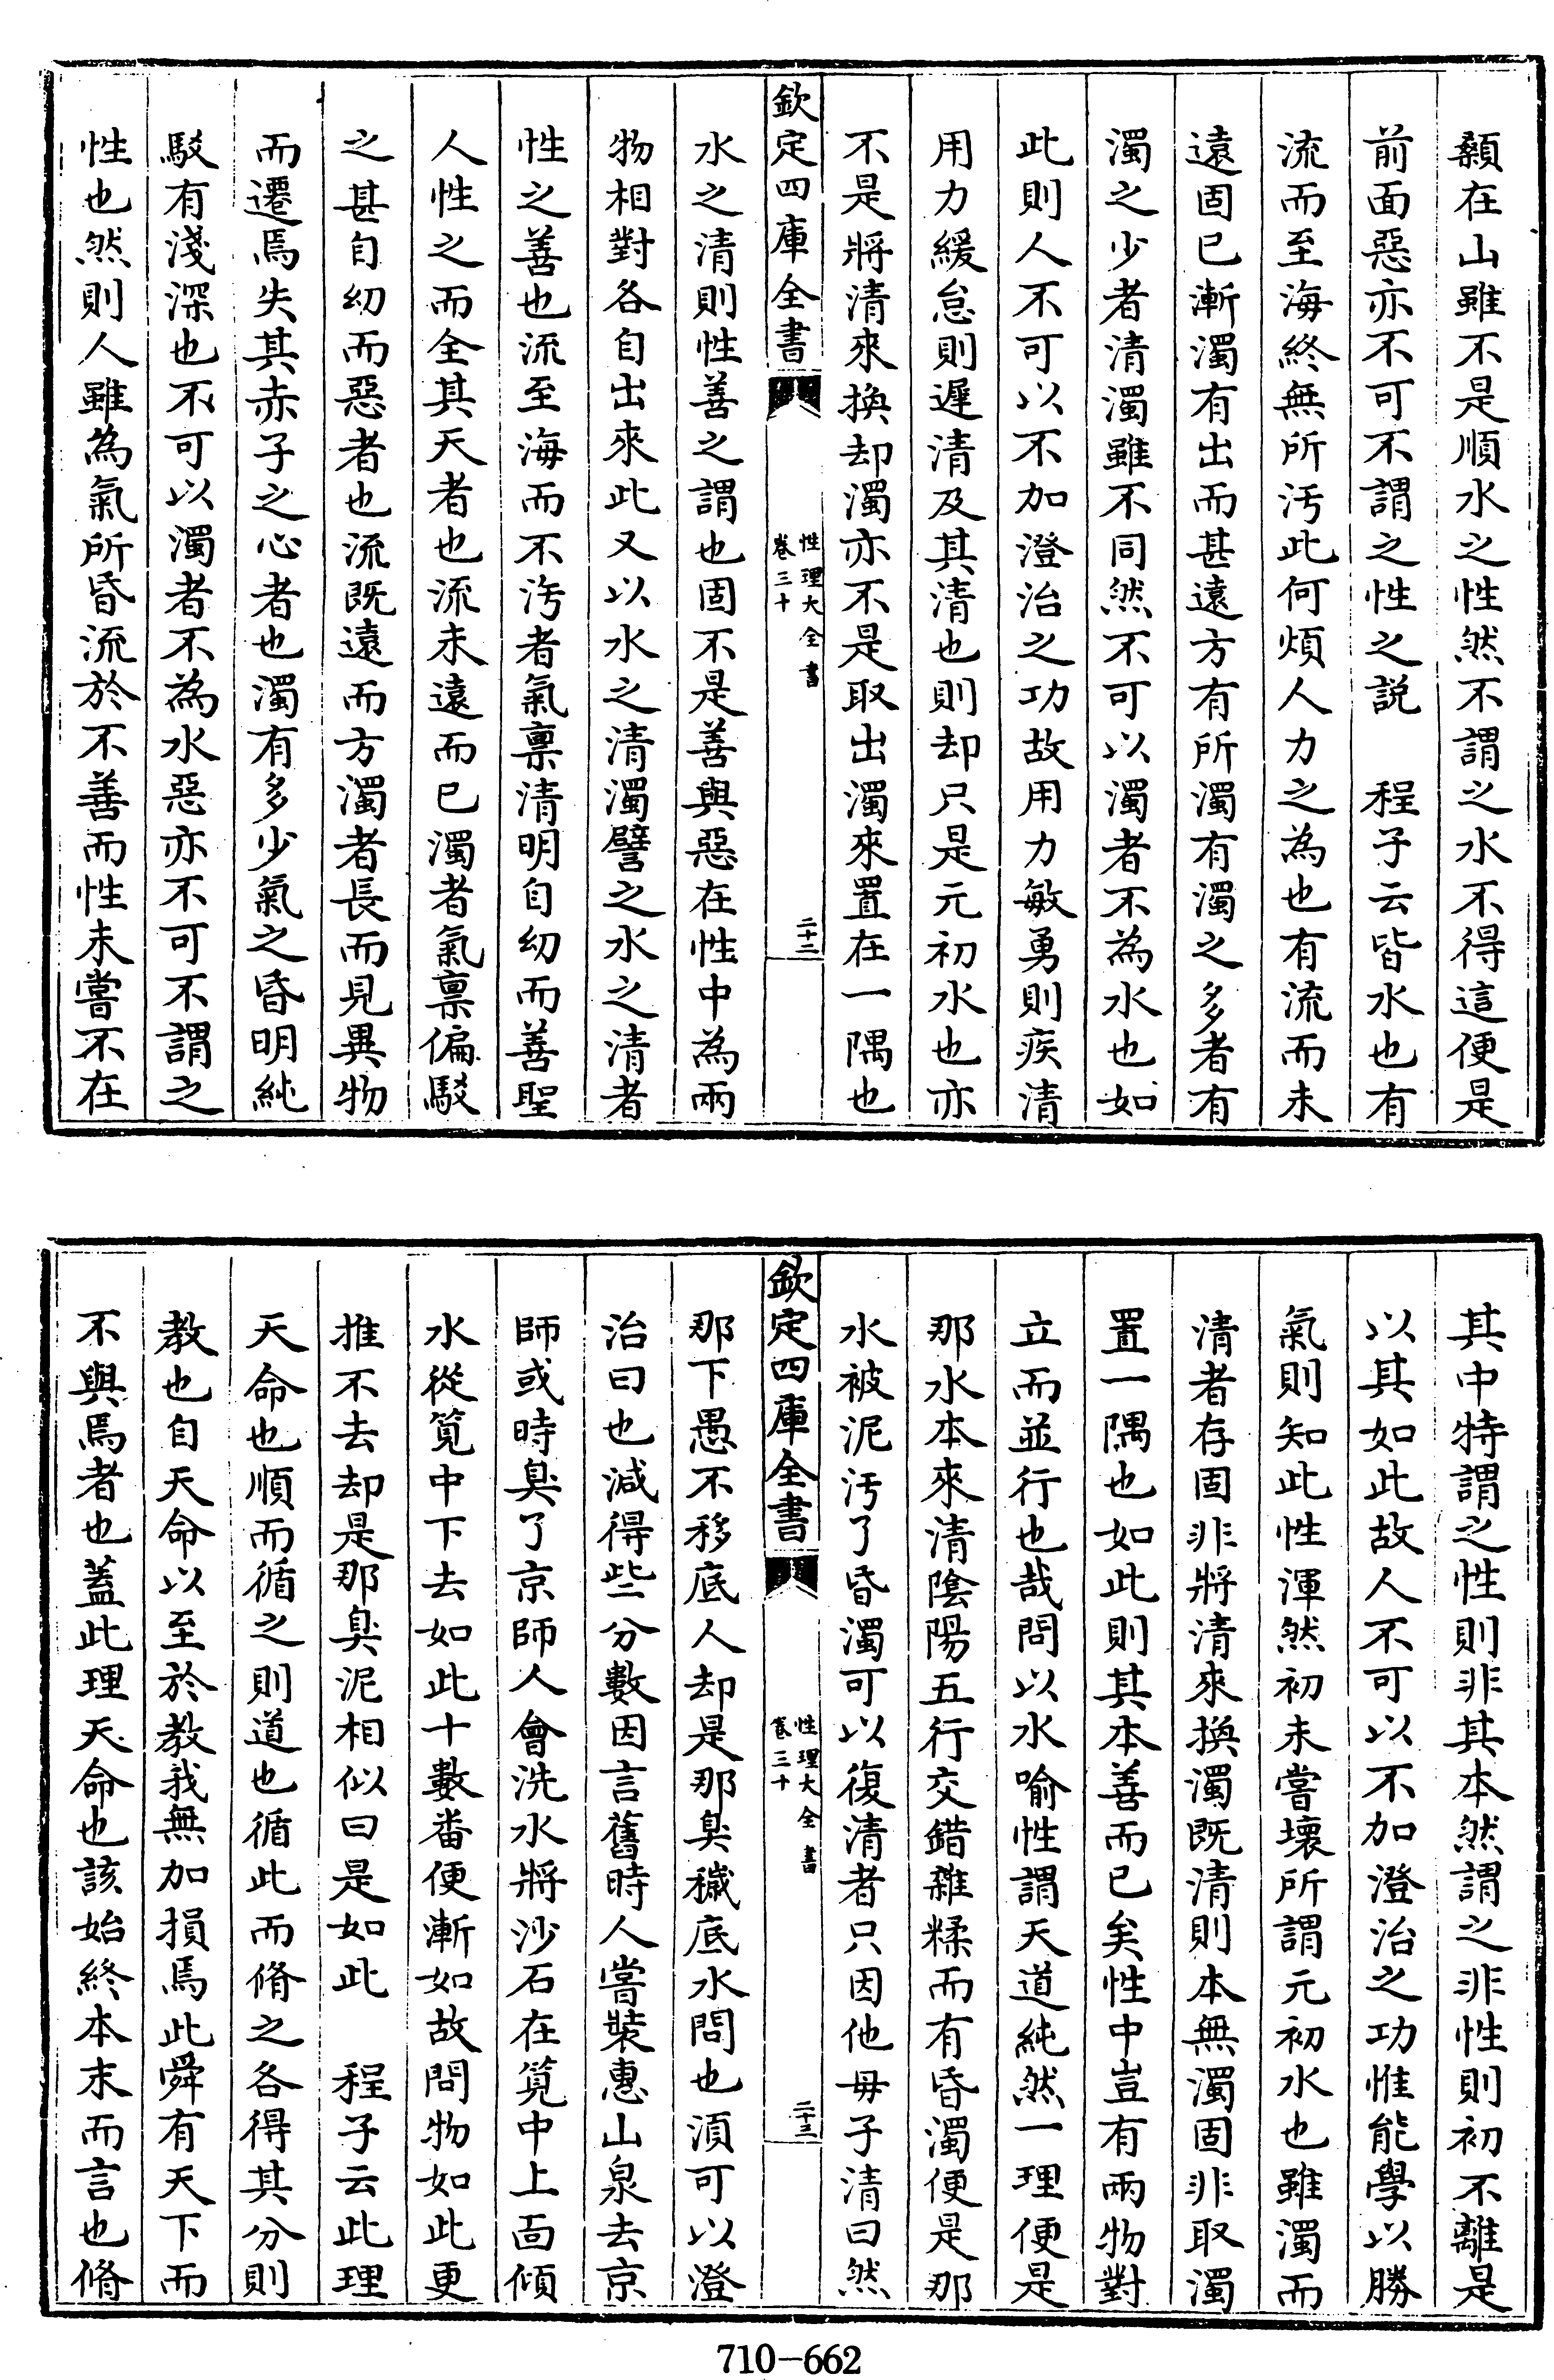 顙在山雖不是順水之性然不謂之水不得這便是
前面惡亦不可不謂之性之説　程子云皆水也有
流而至海終無所汚此何煩人力之為也有流而未
遠固已漸濁有出而甚遠方有所濁有濁之多者有
濁之少者清濁雖不同然不可以濁者不為水也如
此則人不可以不加澄治之功故用力敏勇則疾清
用力緩怠則遲清及其清也則却只是元初水也亦
不是將清來換却濁亦不是取出濁來置在一隅也
欽定四庫全書
性理大全書
卷三十
二十二
水之清則性善之謂也固不是善與惡在性中為兩
物相對各自出來此又以水之清濁譬之水之清者
性之善也流至海而不汚者氣稟清明自幼而善聖
人性之而全其天者也流未遠而已濁者氣稟偏駁
之甚自幼而惡者也流既遠而方濁者長而見異物
而遷焉失其赤子之心者也濁有多少氣之昏明純
駁有淺深也不可以濁者不為水惡亦不可不謂之
性也然則人雖為氣所昏流於不善而性未嘗不在
其中特謂之性則非其本然謂之非性則初不離是
以其如此故人不可以不加澄治之功惟能學以勝
氣則知此性渾然初未嘗壞所謂元初水也雖濁而
清者存固非將清來換濁既清則本無濁固非取濁
置一隅也如此則其本善而已矣性中豈有兩物對
立而並行也哉問以水喻性謂天道純然一理便是
那水本來清陰陽五行交錯雜糅而有昏濁便是那
水被泥汚了昏濁可以復清者只因他母子清曰然
欽定四庫全書
性理大全書
卷三十
二十三
那下愚不移底人却是那臭穢底水問也須可以澄
治曰也減得些分數因言舊時人嘗裝惠山泉去京
師或時臭了京師人會洗水將沙石在筧中上面傾
水從筧中下去如此十數番便漸如故問物如此更
推不去却是那臭泥相似曰是如此　程子云此理
天命也順而循之則道也循此而脩之各得其分則
教也自天命以至於教我無加損焉此舜有天下而
不與焉者也蓋此理天命也該始終本末而言也脩
710-662